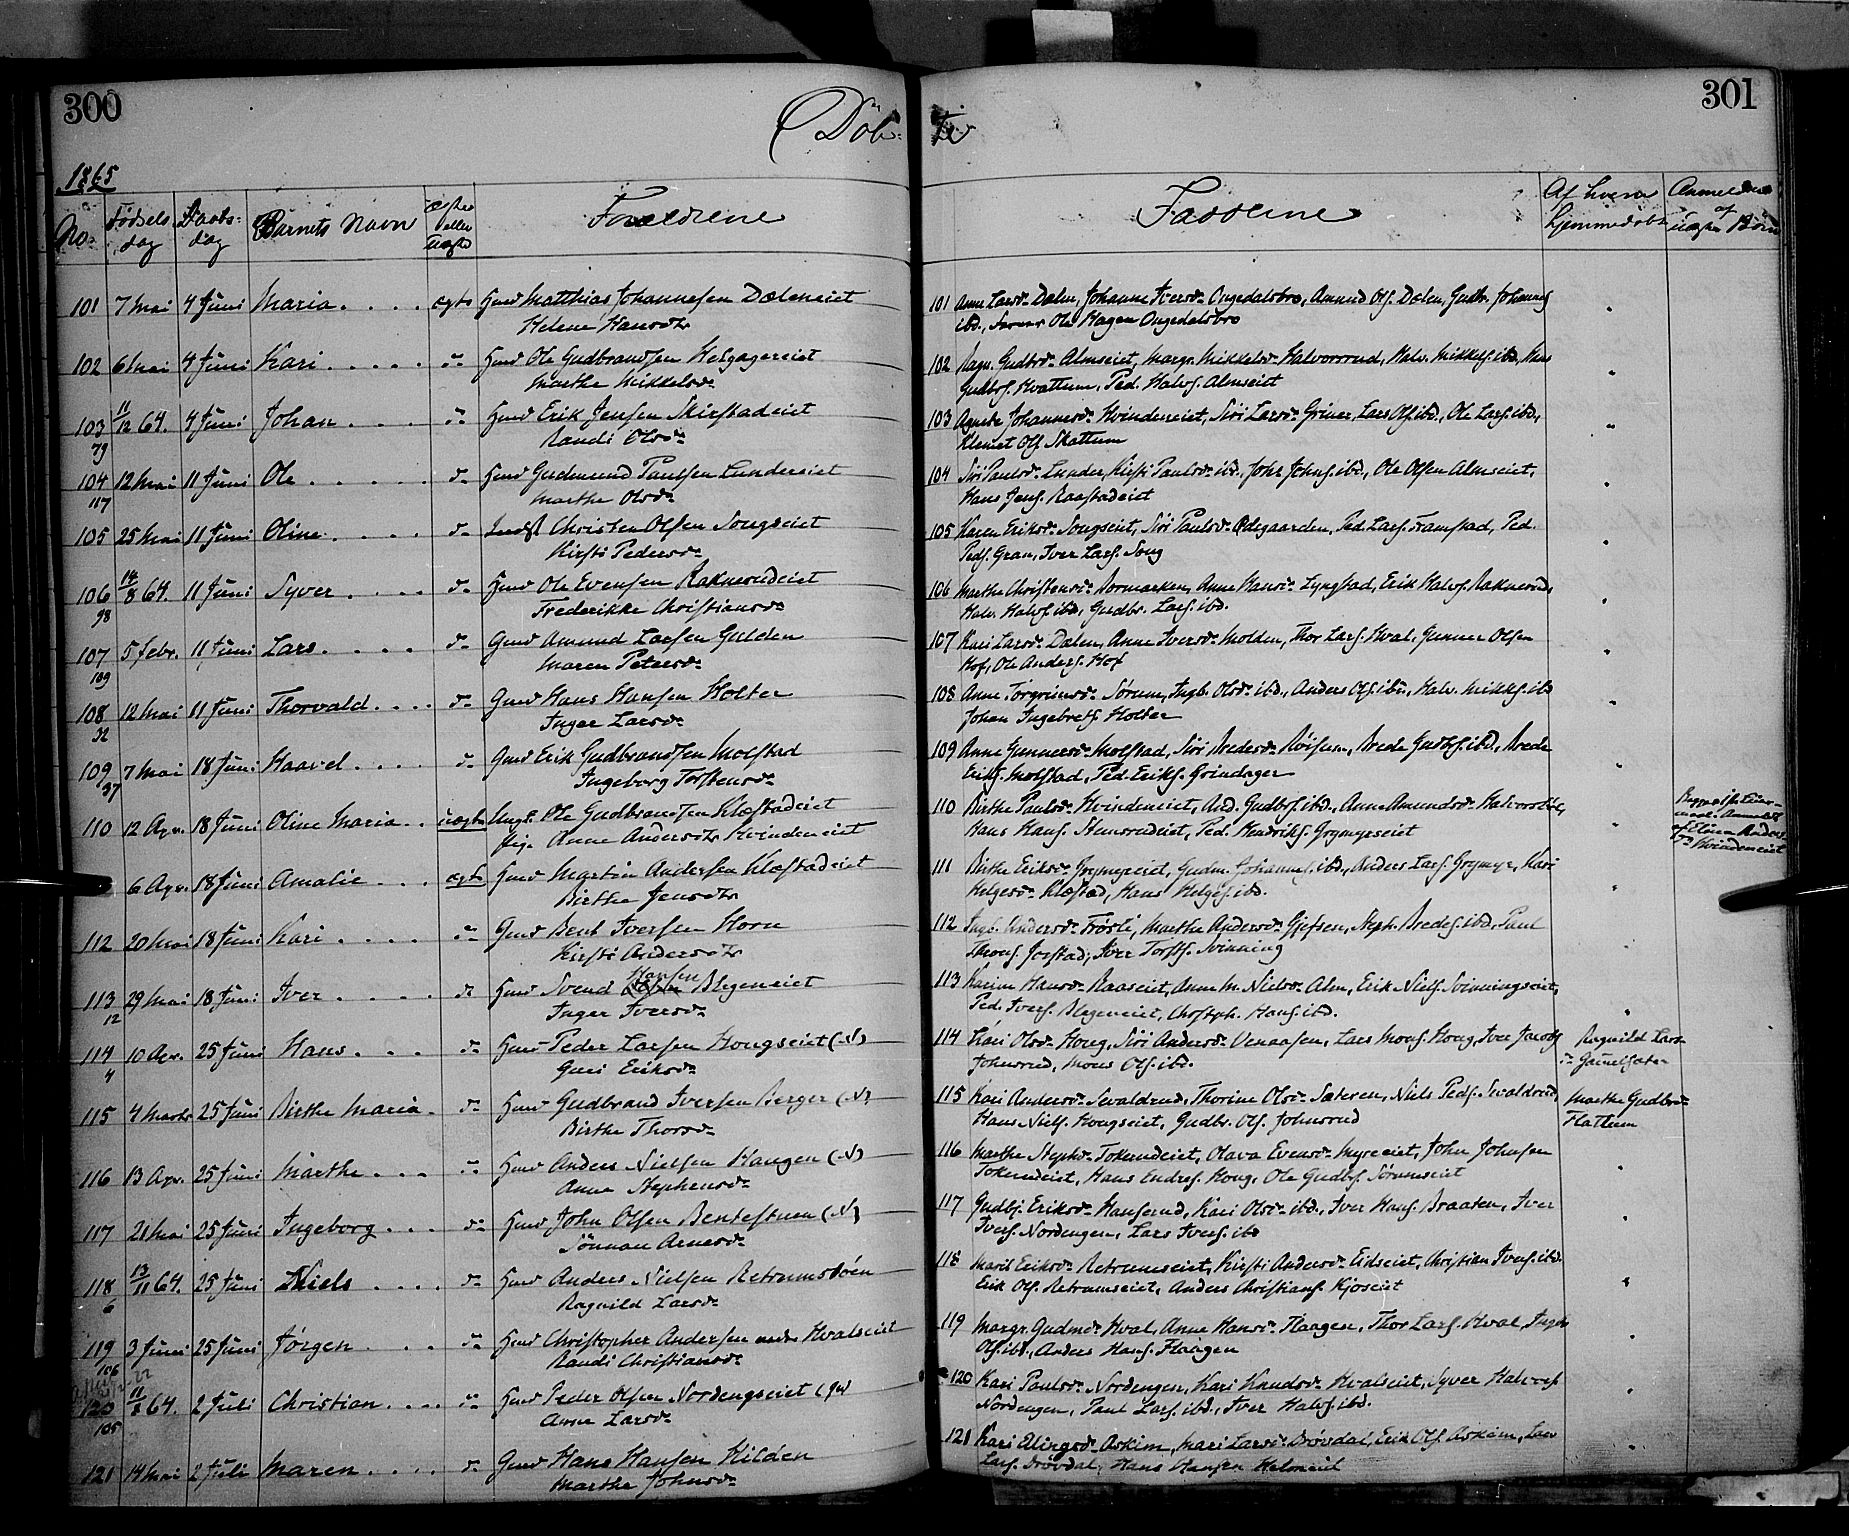 300
Døb-
te
301
1865
No.
Fødsels
dag
Daabs-
dag
Barnets Navn
ægte
eller
uægte
Forældrene
Fadderne
Af hvem
hjemmedøbt
Anmeldt
af
uægte Børn
101 7 Mai 4 Juni Maria ægte Huusm Matthias Johannesen Dæleneiet
Helene Hansdtr
102 6 Mai 4 Juni Kari d- Huusm Ole Gudbrandsen Helgagereiet
Marthe Mikkelsd-
103 11/12 64. 4 Juni Johan d- Huusm Erik Jensen Skirstadeiet
79 Randi Olsd-
104 12 Mai 11 Juni Ole d- Huusm Gudmund Paulsen Lundereiet
117 Marthe Olsd-
105 25 Mai 11 Juni Oline d- Inds. Christen Olsen Songseiet
Kirsti Pedersd-
106 14/8 64. 11 Juni Syver d- Huusm Ole Evensen Raknerudeiet
98 Frederikke Christiansd-
107 5 Febr. 11 Juni Lars d- Gmd Amund Larsen Gulden
109 Maren Petersd-
108 12 Mai 11 Juni Thorvald d- Gmd Hans Hansen Holter
32 Inger Larsd-
109 7 Mai 18 Juni Haavel d- Gmd Erik Gudbrandsen Molstad
37 Ingeborg Torstensd-
110 12 Apr. 18 Juni Oline Maria uægte Ungk. Ole Gudbrandsen Klæstadeiet
Pige Anne Andersdtr Hvindeneiet
6 Apr. 18 Juni Amalie ægte Huusm Martin Andersen Klæstadeiet
Birthe Jensdtr
112 20 Mai 18 Juni Kari d- Gmd Bent Iversen Horn
Kirsti Andersdtr
Hansen
113 29 Mai 18 Juni Iver d- Huusm Svend Blegeneiet
12 Inger Iversd-
114 10 Apr. 25 Juni Hans d- Huusm Peder Larsen Hougseiet (N)
4 Guri Eriksd-
115 4 Marts 25 Juni Birthe Maria d- Huusm Gudbrand Iversen Berger (N)
Birthe Thorsd-
116 13 Apr. 25 Juni Marthe d- Huusm Anders Nielsen Haugen (N)
Anne Stephensd-
117 21 Mai 25 Juni Ingeborg d- Huusm John Olsen Bentestuen (N)
Sønnau Arnesd-
118 13/11 64. 25 Juni Niels d- Huusm Anders Nielsen Retrumsbøen
6 Ragnild Larsd-
119 3 Juni 25 Juni Jørgen d- Huusm Christopher Andersen Hvalseiet
106 Randi Christiansd-
120 64. 2 Juli Christian d- Huusm Peder Olsen Nordengseiet
105 Anne Larsd-
121 14 Mai 2 Juli Maren d- Gmd Hans Hansen Hilden
Marthe Johnsd-
101 Anne Larsd- Dælen, Johanne Iversd- Ongedalsbro, Amund Ols. Dælen, Gudbr. Johannes
ibd., Ole Hagen Ongedalsbro
102 Ragn. Gudbrd- Almseiet, Margr. Mikkelsd- Halvorsrud, Halv. Mikkels. ibd., Hans
Gudbrs. Hvattum, Ped. Halvs. Almseiet
103 Agnete Johannesd- Hvindeneiet, Siri Larsd- Griner, Lars Ols. ibd., Ole Lars. ibd.,
Klemet Ols. Skattum
104 Siri Paulsd- Lunder, Kirsti Paulsd- ibd., John Johns. ibd., Ole Olsen Almseiet,
Hans Jens. Raastadeiet
105 Karen Eriksd- Songseiet, Siri Paulsd- Ødegaarden, Ped. Lars. Framstad, Ped.
Peds. Gran, Iver Lars. Song
106 Marthe Christensd- Rormarken, Anne Hansd- Lyngstad, Erik Halvs. Raknerud,
Halv. Halvs. ibd., Gudbr. Lars. ibd.
107 Kari Larsd- Dælen, Anne Iversd- Molden, Thor Lars. Hval, Gunner Olsen
Hof, Ole Anders. Hof
108 Anne Torgrimsd- Sørum, Ingb. Olsd- ibd., Anders Ols. ibd., Halv. Mikkels. ibd
Johan Ingebrets. Holter
109 Anne Gunnersd- Molstad, Siri Bredesd- Røisum, Brede Gudbrs. ibd., Brede
Eriks. Molstad, Ped. Eriks. Grindager
110 Birthe Paulsd- Hvindeneiet, And. Gudbrs. ibd., Anne Amundsd-
Hans Hans. Stensrudeiet, Ped. Hendriks. Grymyrseiet
111 Birthe Eriksd- Grymyreiet, Gudm. Johannes. ibd., Anders Lars. Grymyr, Kari
Helgesd- Klæstad, Hans Helges. ibd.
112 Ingb. Andersd- Frøsli, Marthe Andersd- Gjefsen, Steph. Bredes. ibd., Paul
Thors. Jorstad, Iver Torsts. Svinning
113 Karine Hansd- Raaseiet, Anne M. Nielsd- Alm, Erik Niels. Svinningseiet,
Ped. Ivers. Blegeneiet, Chrstph. Hans. ibd.
114 Kari Olsd- Houg, Siri Andersd- Venaasen, Lars Mons. Houg, Iver Jacobs.
Johnsrud, Mons Ols. ibd.
115 Kari Andersd- Sevaldrud, Thorine Olsd- Sæteren, Niels Peds. Sevaldrud,
Hans Niels. Hougseiet, Gudbr. Ols. Johnsrud
116 Marthe Stephd- Tokerudeiet, Olava Evensd- Myreeiet, John Johnsen
Tokerudeiet, Hans Endres. Houg, Ole Gudbrs. Sørumseiet
117 Gudbj. Eriksd- Hanserud, Kari Olsd- ibd., Iver Hans. Braaten, Iver
Ivers. Nordengen, Lars Ivers. ibd
118 Marit Eriksd- Retrumseiet, Kirsti Andersd- Eidseiet, Christian Ivers. ibd.
Erik Ols. Retrumseiet, Anders Christians. Kjoseiet
119 Margr. Gudmd- Hval, Anne Hansd- Flaagen, Thor Lars. Hval, Ingbr.
Ols. ibd., Anders Hans. Flaagen
120 Kari Paulsd- Nordengen, Kari Knudsd- Hvalseiet, Syver Halvors.
Nordengen, Paul Lars. ibd., Iver Halvs. ibd.
121 Kari Elingsd- Askim, Mari Larsd- Drøvdal, Erik Ols. Askim, Lars
Lars. Drøvdal, Hans Hansen
Ragnild Lars-
d-
Marthe Gudbrd-
Flattum
Anmeldt
Hvindeneiet